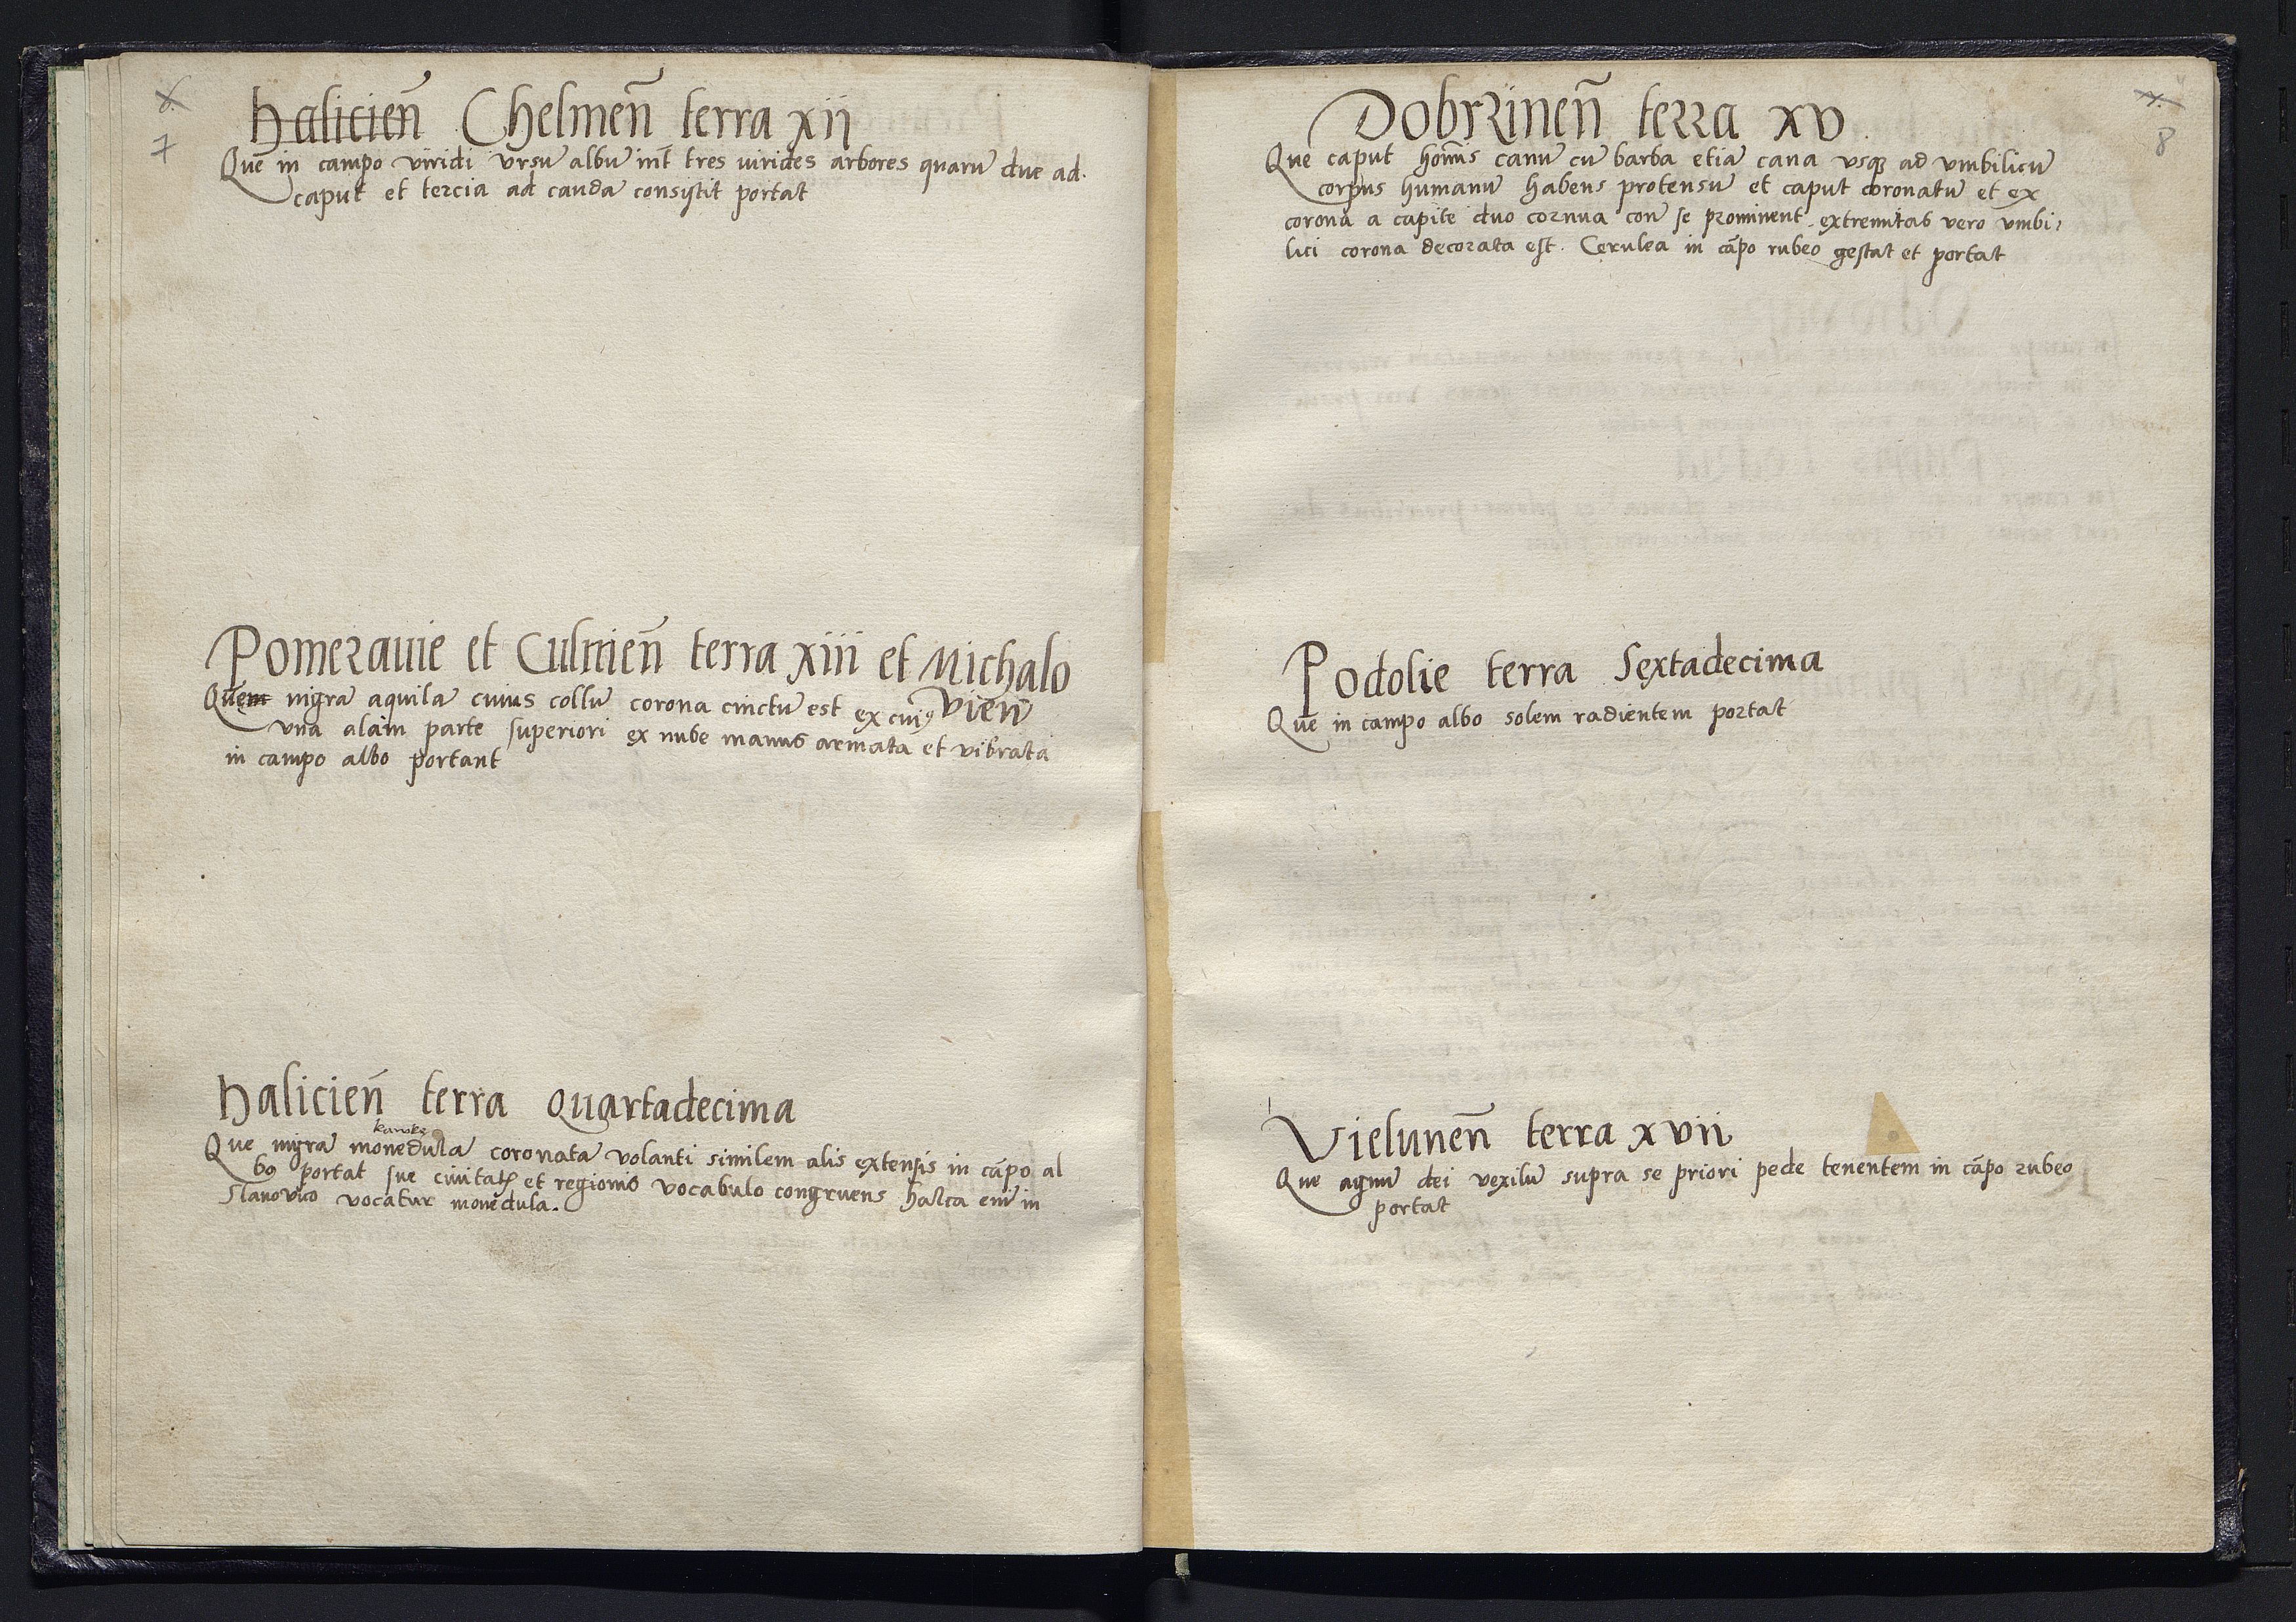 6.
7
Halicień Chelmeñ terra xii
Que in campo viridi vrsū albū int̄ tres virides arbores quarū due ad.
caput et tercia ad caudā consistit portat
Pomeranie et Culmeñ terra xiii et Michalo
vieñ
Quem nigrā aquilā cuius collū corona cinctū est ex cuiꝰ
vna alaꝝ parte superiori ex nube manus armata et vibrata
in campo albo portant
Halicieñ terra Quartadecima
kawka
Que nigrā monedulā coronatā volanti similem alis extensis in cāpo al
bo portat sue ciuitatꝭ et regionis vocabulo congruens halca enī in
Slanovico vocatur monedula.
7.
8
Dobrzineñ terra xv
Que caput hoīnis canū cū barba etiā cana vsqꝫ ad vmbilicū
corpus humanū habens protensū et caput coronatū et ex
corona a capite duo cornua con se prominent. extremitas vero vmbi-
lici corona decorata est. Cerulea in cāpo rubeo gestat et portat
Podolie terra Sextadecima
Que in campo albo solem radientem portat
Vieluneñ terra xvii
Que agnū dei vexilū supra se priori pede tenentem in cāpo rubeo
portat